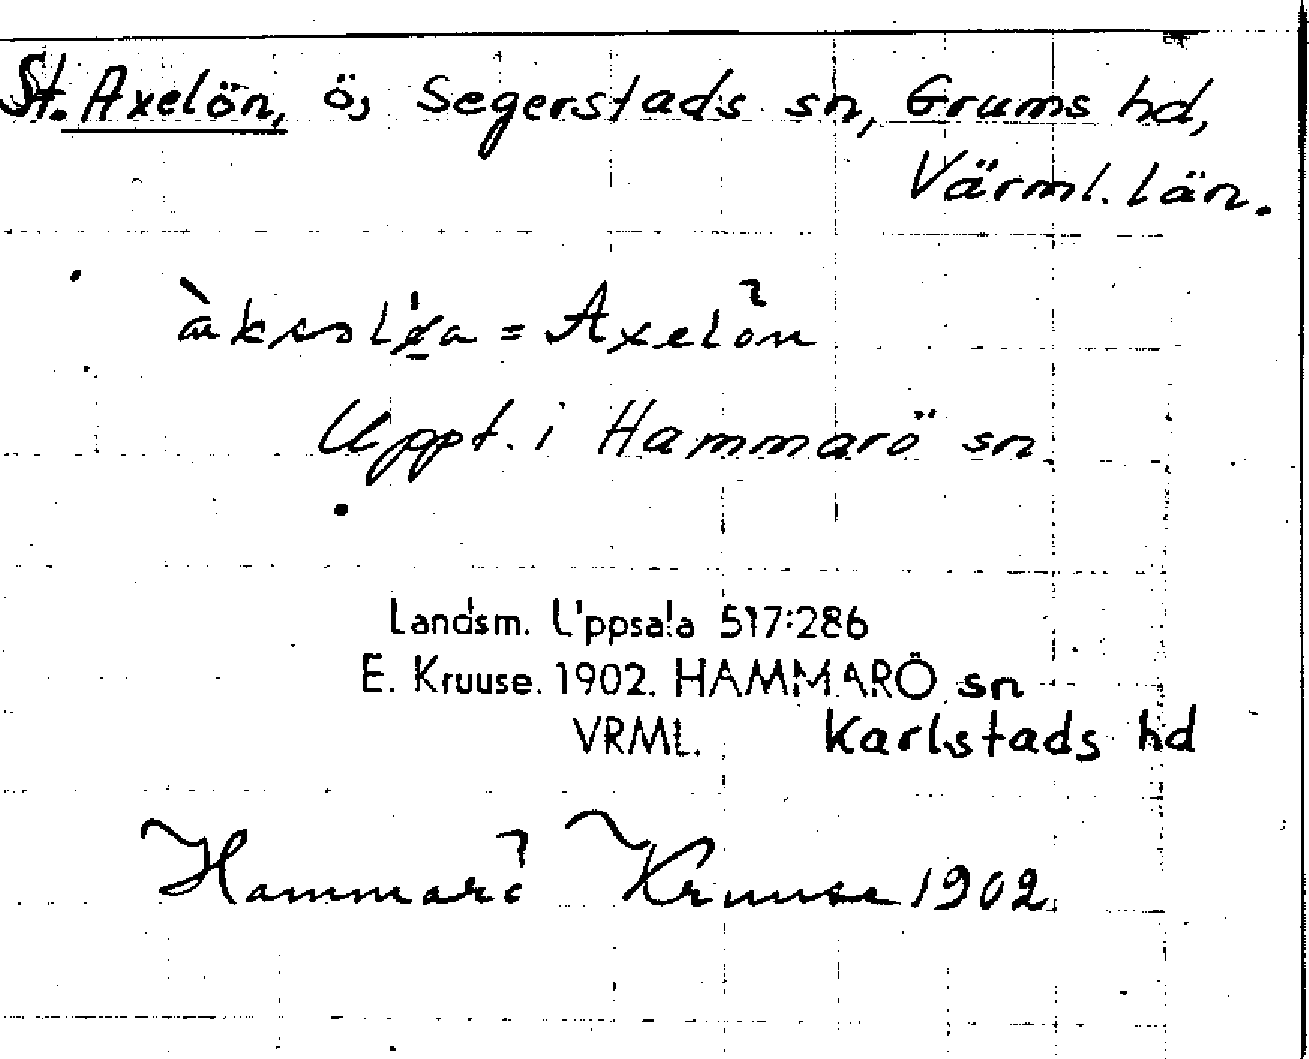 St. Axelön, ö, Segerstads sn, Grums hd,
Värml. län.
= Axelön
Uppt. i Hammarö sn.
Landsm. Uppsala 517:286
E. Kruuse. 1902. HAMMARÖ sn
VRML. Karlstads hd
Hammarö Kruuse 1902.